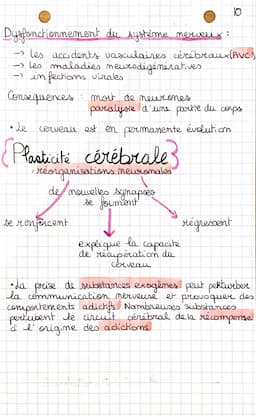 10
Dysfonctionnement du système nerveux :
→ les accidents vasculaires cérébraux (AVC)
→ les maladies neurodégénératives
→ infections virales
Conséquences : mort de neurones
paralysie d'une partie du corps
• Le cerveau est en permanente évolution
{Plasticité cérébrale}
réorganisations neuronales
de nouvelles synapses
se forment
se renforcent
régressent
explique la capacité
de récupération du
cerveau
• La prise de substances exogènes peut perturber
la communication nerveuse et provoquer des
comportements addictifs. Nombreuses substances
perturbent le circuit cérébral de la récompense
à l'origine des addictions